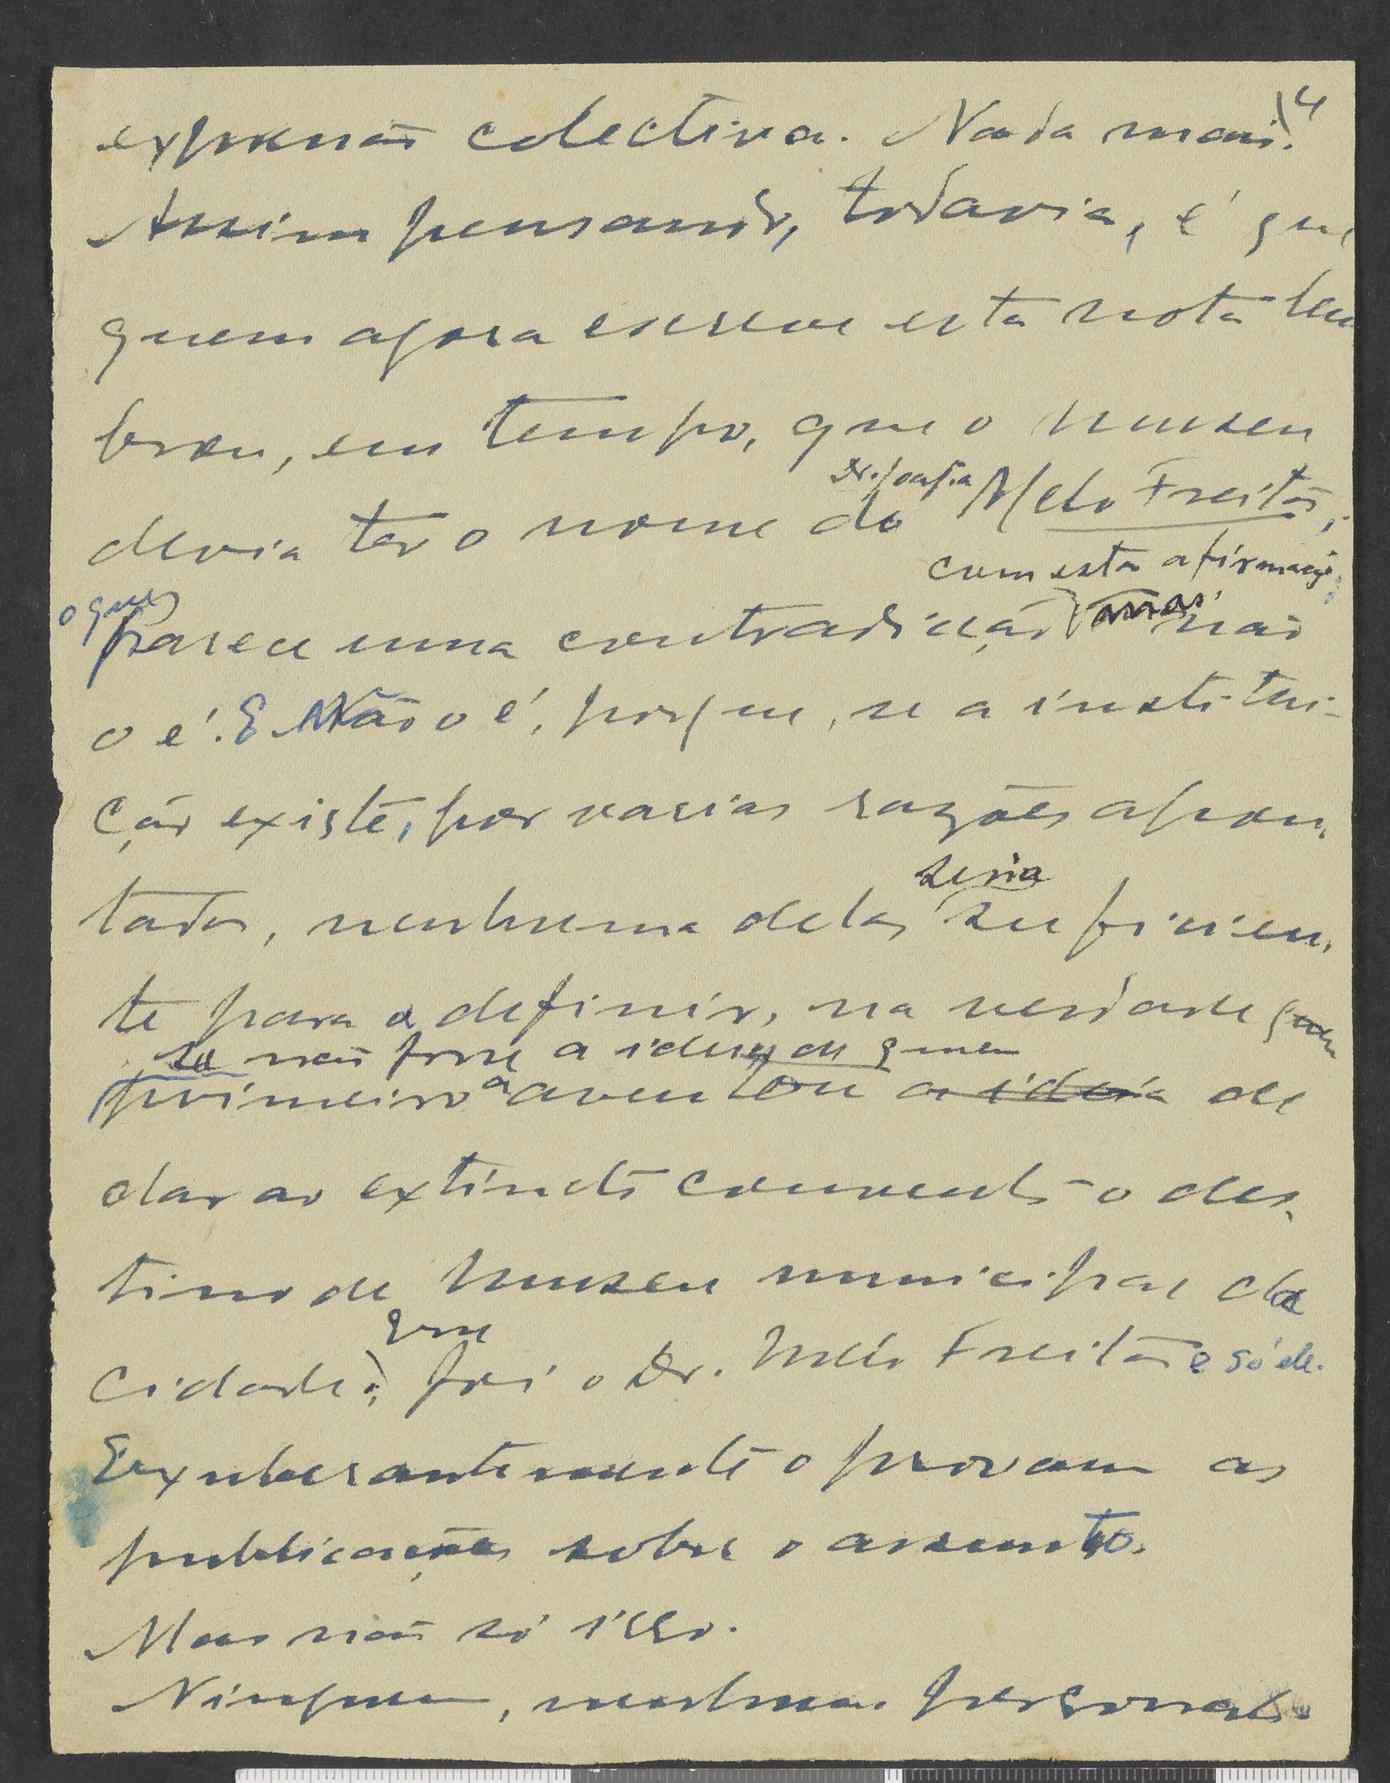 4
expressão colectiva. Nada mais.
Assim pensando, todavia, é que
quem agora escreve esta nota lem
brou, em tempo, que o museu
devia ter o nome do Dr. Joaq.m Melo Freitas,
com esta afirmação,
o que parece uma contradicção mas não
o é. E Não o é, porque, se a institui-
ção existe, por varias razões apon-
tadas, nenhuma delas seria suficien-
te para a definir, na verdade quem
se não fosse a ideia de quem
primeiro a aventou a ideia de
dar ao extincto convento o des-
tino de museu municipal da
cidade; que foi o Dr. Melo Freitas e só ele.
Exuberantemente o provam as
publicações sobre o assunto.
Mas não só isso.
Ninguem, nenhuma personali-